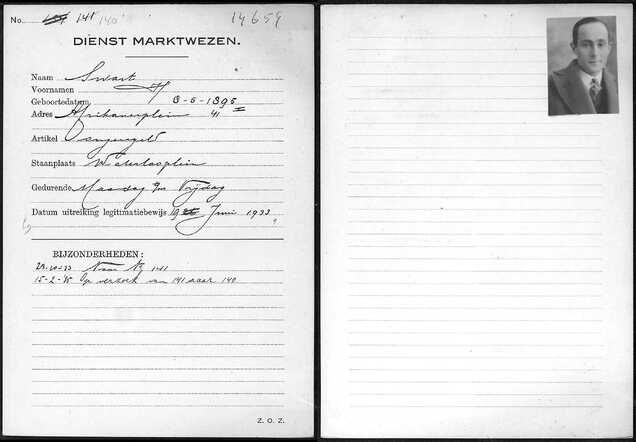 No. 141 140 14659
DIENST MARKTWEZEN.
Naam Swart
Voornamen H
Geboortedatum 8-6-1896
Adres Afrikanerplein 41 II
Artikel
Staanplaats Waterlooplein
Gedurende Maandag t/m Vrijdag
Datum uitreiking legitimatiebewijs 19 Juni 1933
BIJZONDERHEDEN:
24-10-33 Naar No 141
15-2-'35 Op verzoek van 141 naar 140
Z. O. Z.